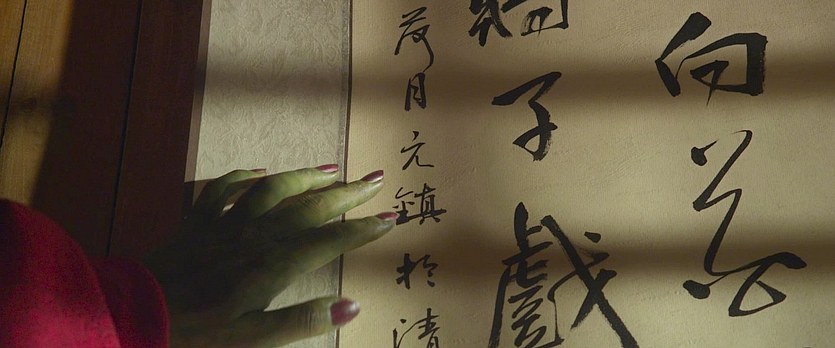 向
子戲
荷月元鎮於清